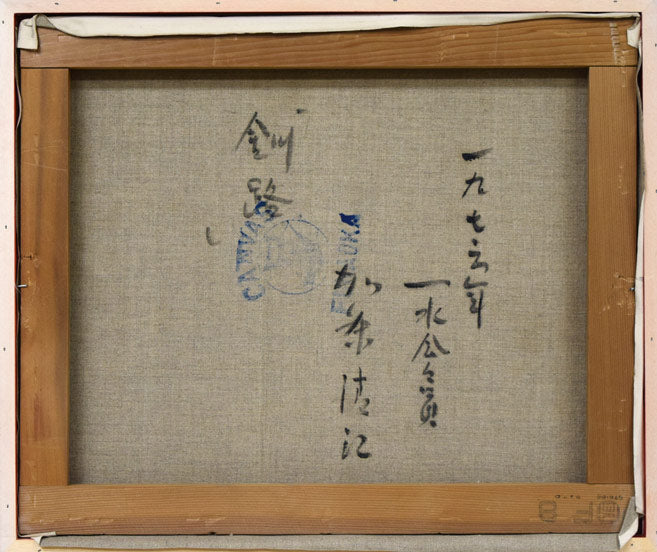 一九七六年
一水会員
加藤清江
釧路
CANVAS